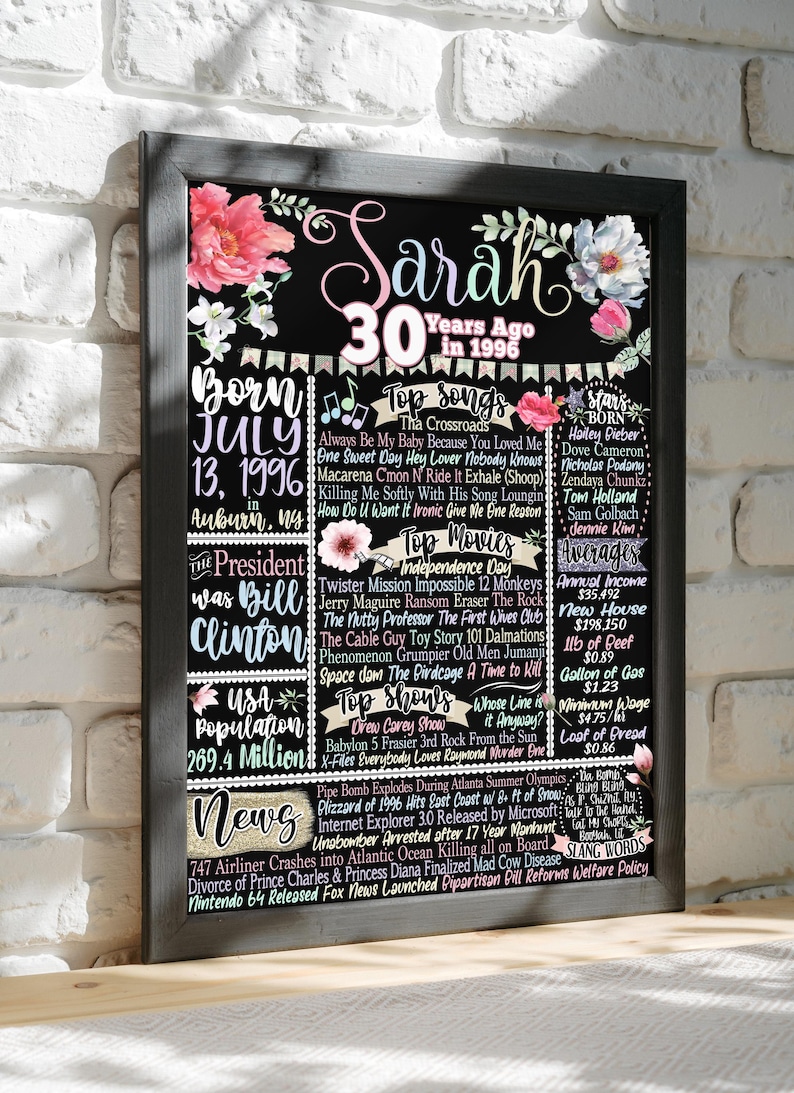 Sarah
30 Years Ago
in 1996
Born
JULY
13, 1996
in
Auburn, NY
THE President
was Bill
Clinton
USA
Population
269.4 Million
Top Songs
Tha Crossroads
Always Be My Baby Because You Loved Me
One Sweet Day Hey Lover Nobody Knows
Macarena Cmon N' Ride It Exhale (Shoop)
Killing Me Softly With His Song Loungin
How Do U Want It Ironic Give Me One Reason
Top Movies
Independence Day
Twister Mission Impossible 12 Monkeys
Jerry Maguire Ransom Eraser The Rock
The Nutty Professor The First Wives Club
The Cable Guy Toy Story 101 Dalmations
Phenomenon Grumpier Old Men Jumanji
Space Jam The Birdcage A Time to Kill
Top Shows
Whose Line is
it Anyway?
Drew Carey Show
Babylon 5 Frasier 3rd Rock From the Sun
X-Files Everybody Loves Raymond Murder One
Stars
BORN
Hailey Bieber
Dove Cameron
Nicholas Podany
Zendaya Chunkz
Tom Holland
Sam Golbach
Jennie Kim
Averages
Annual Income
$35,492
New House
$198,150
1lb of Beef
$0.89
Gallon of Gas
$1.23
Minimum Wage
$4.75/hr
Loaf of Bread
$0.86
News
Pipe Bomb Explodes During Atlanta Summer Olympics
Blizzard of 1996 Hits East Coast w/ 8+ ft of Snow
Internet Explorer 3.0 Released by Microsoft
Unabomber Arrested after 17 Year Manhunt
747 Airliner Crashes into Atlantic Ocean Killing all on Board
Divorce of Prince Charles & Princess Diana Finalized Mad Cow Disease
Nintendo 64 Released Fox News Launched Bipartisan Bill Reforms Welfare Policy
Da Bomb,
Bling Bling,
As If, Shiznit, Fly,
Talk To the Hand,
Eat My Shorts,
Booyah, Lit
SLANG WORDS